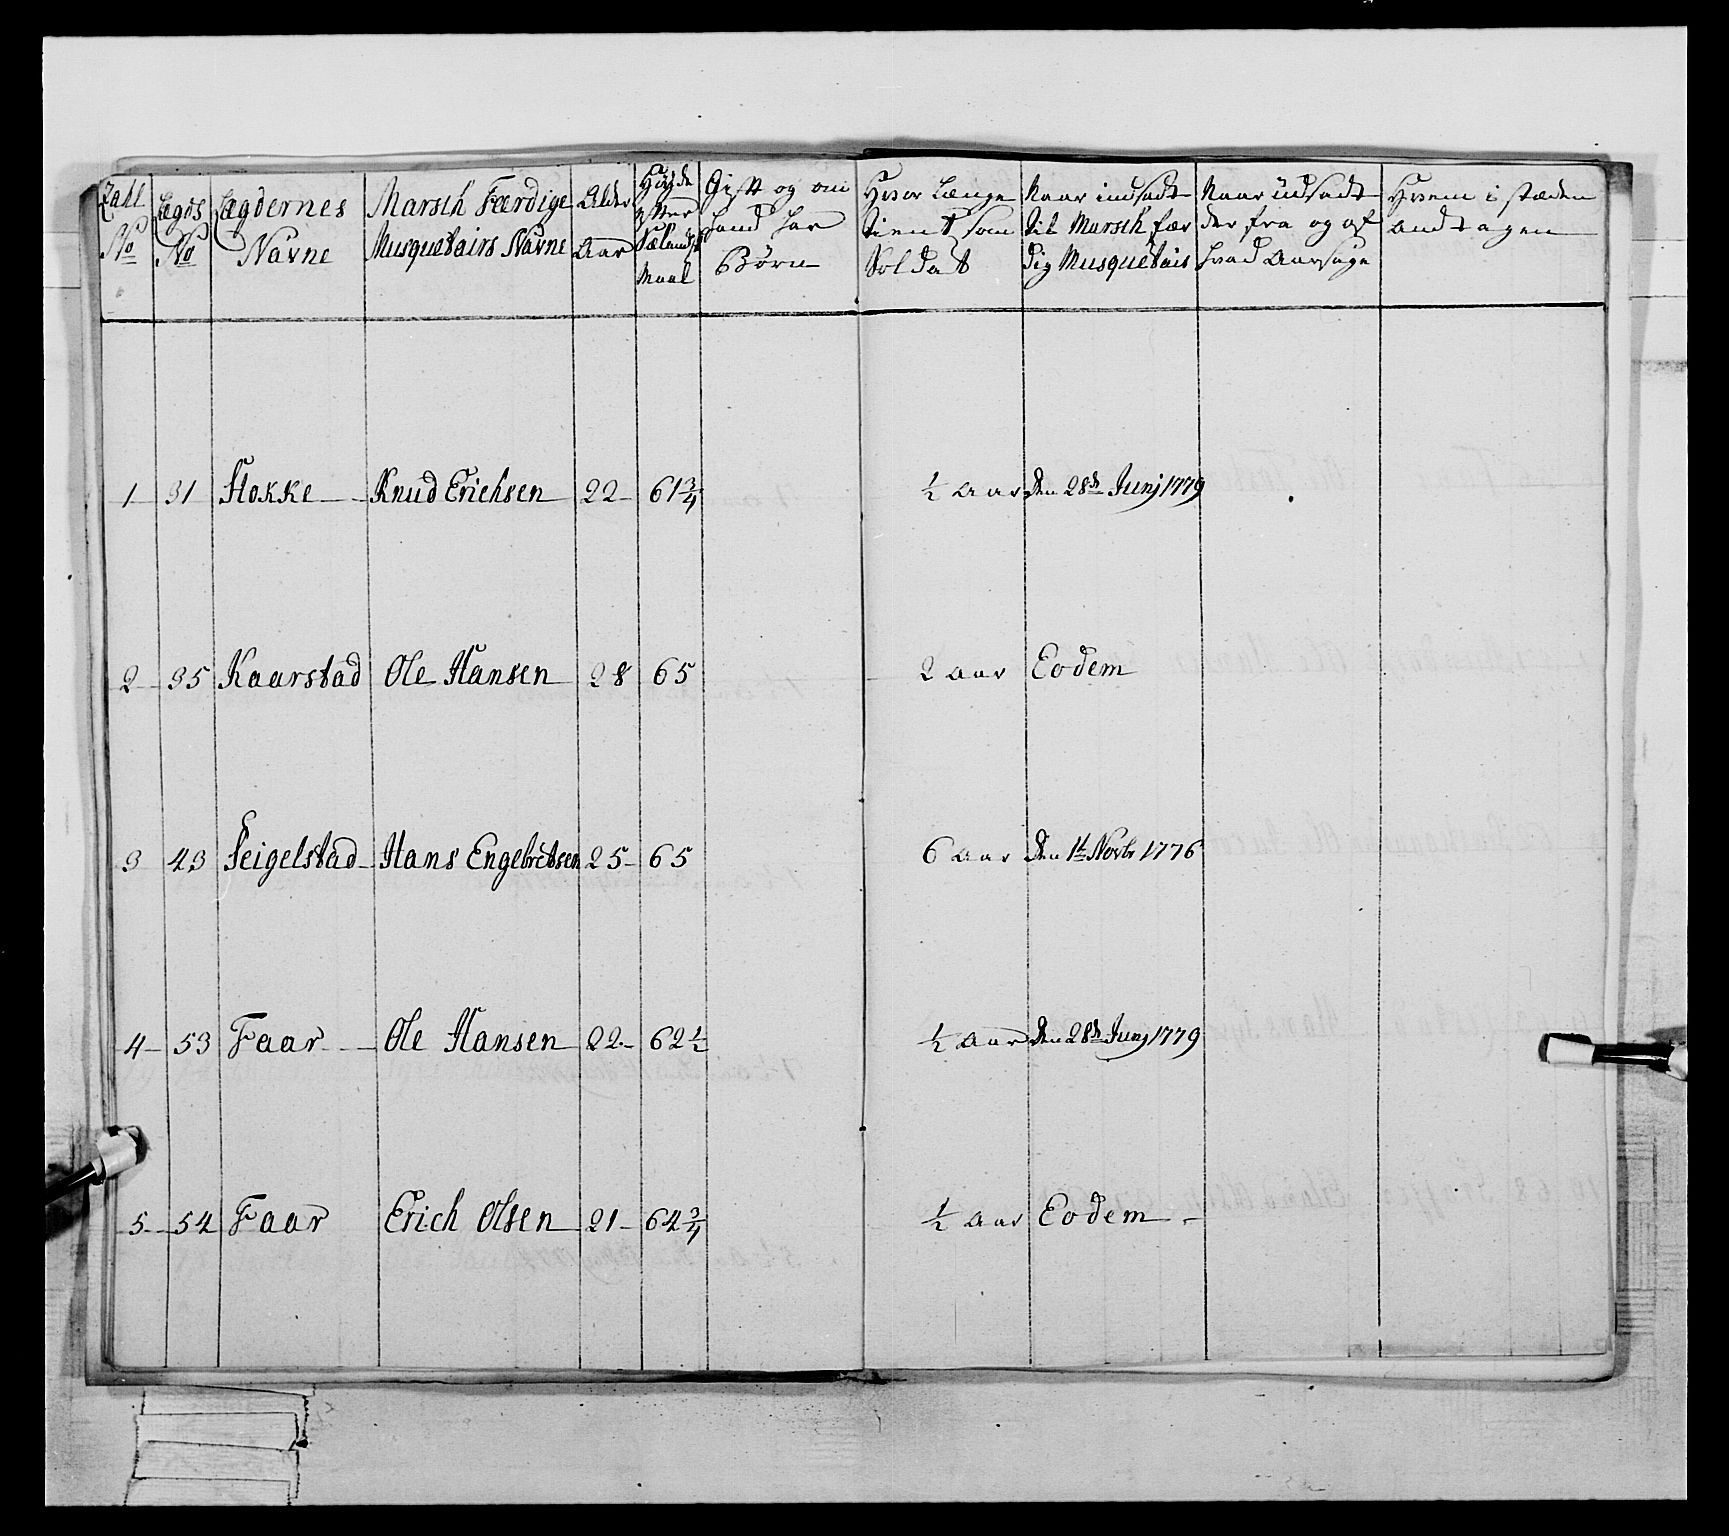 Zahl No | Lægds No | Lægdernes Navne | Marsch Færdige Musquetairs Navne | Alder Aar | Høyde efter Sælands Maal | Gift og om hand har Børn | Hvor Længe tient som Soldat | Naar indsadt til Marsch færdig Musquetair | Naar udsadt der fra og af hvad Aarsage | Hvem i stæden andtagen
1 | 31 | Stokke | Knud Erichsen | 22 | 61 3/4 | ½ Aar | den 28de Junj 1779
2 | 35 | Kaarstad | Ole Hansen | 28 | 65 | 2 Aar | Eodem
3 | 43 | Seigelstad | Hans Engebretsen | 25 | 65 | 6 Aar | den 1te Novbr 1776
4 | 53 | Faar | Ole Hansen | 22 | 62 ½ | ½ Aar | den 28de Junj 1779
5 | 54 | Faar | Erich Olsen | 21 | 64 3/4 | ½ Aar | Eodem